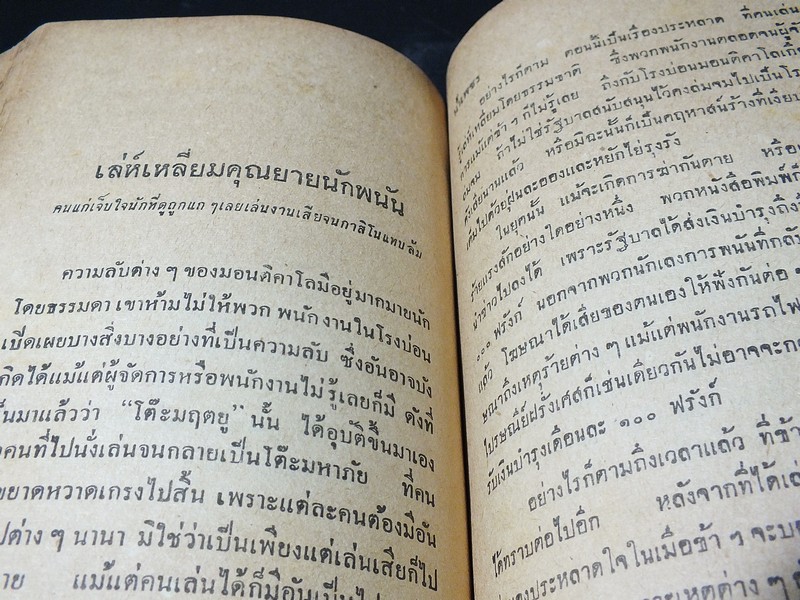 เล่ห์เหลี่ยมคุณยายนักพนัน
คนแก่เจ็บใจนักที่ดูถูกแก ๆเลยเล่นงานเสียจนกาสิโนแทบล้ม
ความลับต่าง ๆ ของมอนติคาโลมีอยู่มากมายนัก
โดยธรรมดา เขาห้ามไม่ให้พวก พนักงานในโรงบ่อน
เปิดเผยบางสิ่งบางอย่างที่เป็นความลับ ซึ่งอันอาจบัง
เกิดได้แม้แต่ผู้จัดการหรือพนักงานไม่รู้เลยก็มี ดังที่
ขึ้นมาแล้วว่า “โต๊ะมฤตยู” นั้น ได้อุบัติขึ้นมาเอง
คนที่ไปนั่งเล่นจนกลายเป็นโต๊ะมหาภัย ที่คน
ขยาดหวาดเกรงไปสิ้น เพราะแต่ละคนต้องมีอัน
ไปต่าง ๆ นานา มิใช่ว่าเป็นเพียงแต่เล่นเสียก็ไป
แม้แต่คนเล่นได้ก็มีอันเป็นไป
อย่างไรก็ตาม ตอนนี้เป็นเรื่องประหลาด ที่คนเล่น
เล่ห์เหลี่ยมโดยธรรมชาติ ซึ่งพวกพนักงานตลอดจนผู้จัด
การแม้แต่ช้า ๆ ก็ไม่รู้เลย ถึงกับโรงบ่อนมอนติคาโลเกือ
ล่มจม ถ้าไม่ใช่รัฐบาลสนับสนุนไว้คงล่มจมไปเป็นโร
นานแล้ว หรือมิฉะนั้นก็เป็นคฤหาสน์ร้างที่เงียบ
เต็มไปด้วยฝุ่นละอองและหยักไย่รุงรัง
ในยุคนั้น แม้จะเกิดการฆ่ากันตาย หรือ
ร้ายแรงสักอย่างใดอย่างหนึ่ง พวกหนังสือพิมพ์ก็
นำข่าวไปลงได้ เพราะรัฐบาลได้ส่งเงินบำรุงถึง
๑๐๐ ฟรังก์ นอกจากพวกนักเลงการพนันที่กลับ
แล้ว โฆษณาได้เสียของตนเองให้ฟังกันต่อ ๆ
ษณาถึงเหตุร้ายต่าง ๆ แม้แต่พนักงานรถไฟ
ไปรษณีย์ฝรั่งเศสก็เช่นเดียวกันไม่อาจจะกร
รับเงินบำรุงเดือนละ ๑๐๐ ฟรังก์
อย่างไรก็ตามถึงเวลาแล้ว ที่ข้า
ได้ทราบต่อไปอีก หลังจากที่ได้เล่
ของประหลาดใจในเมื่อข้า ๆ จะบอ
เหตุต่าง ๆ